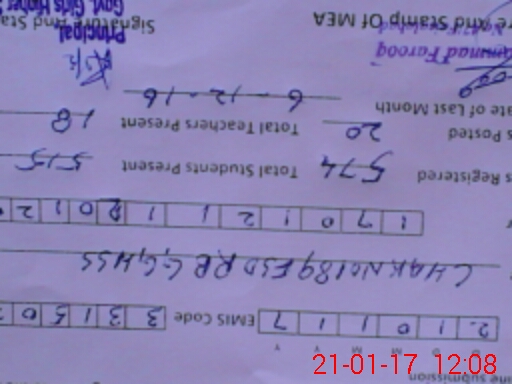 ime submission
D D M M Y Y
2 1 0 1 1 7 EMIS Code 3 3 1 5 0
CHAK NO 189 RB G,G,HSS
1 7 0 1 2 1 1
s Registered 574 Total Students Present 515
s Posted 20 Total Teachers Present 18
ate of Last Month 6-12-16
re And Stamp Of MEA Signature And Sta
Principal
Govt. Girls Higher S
21-01-17 12:08